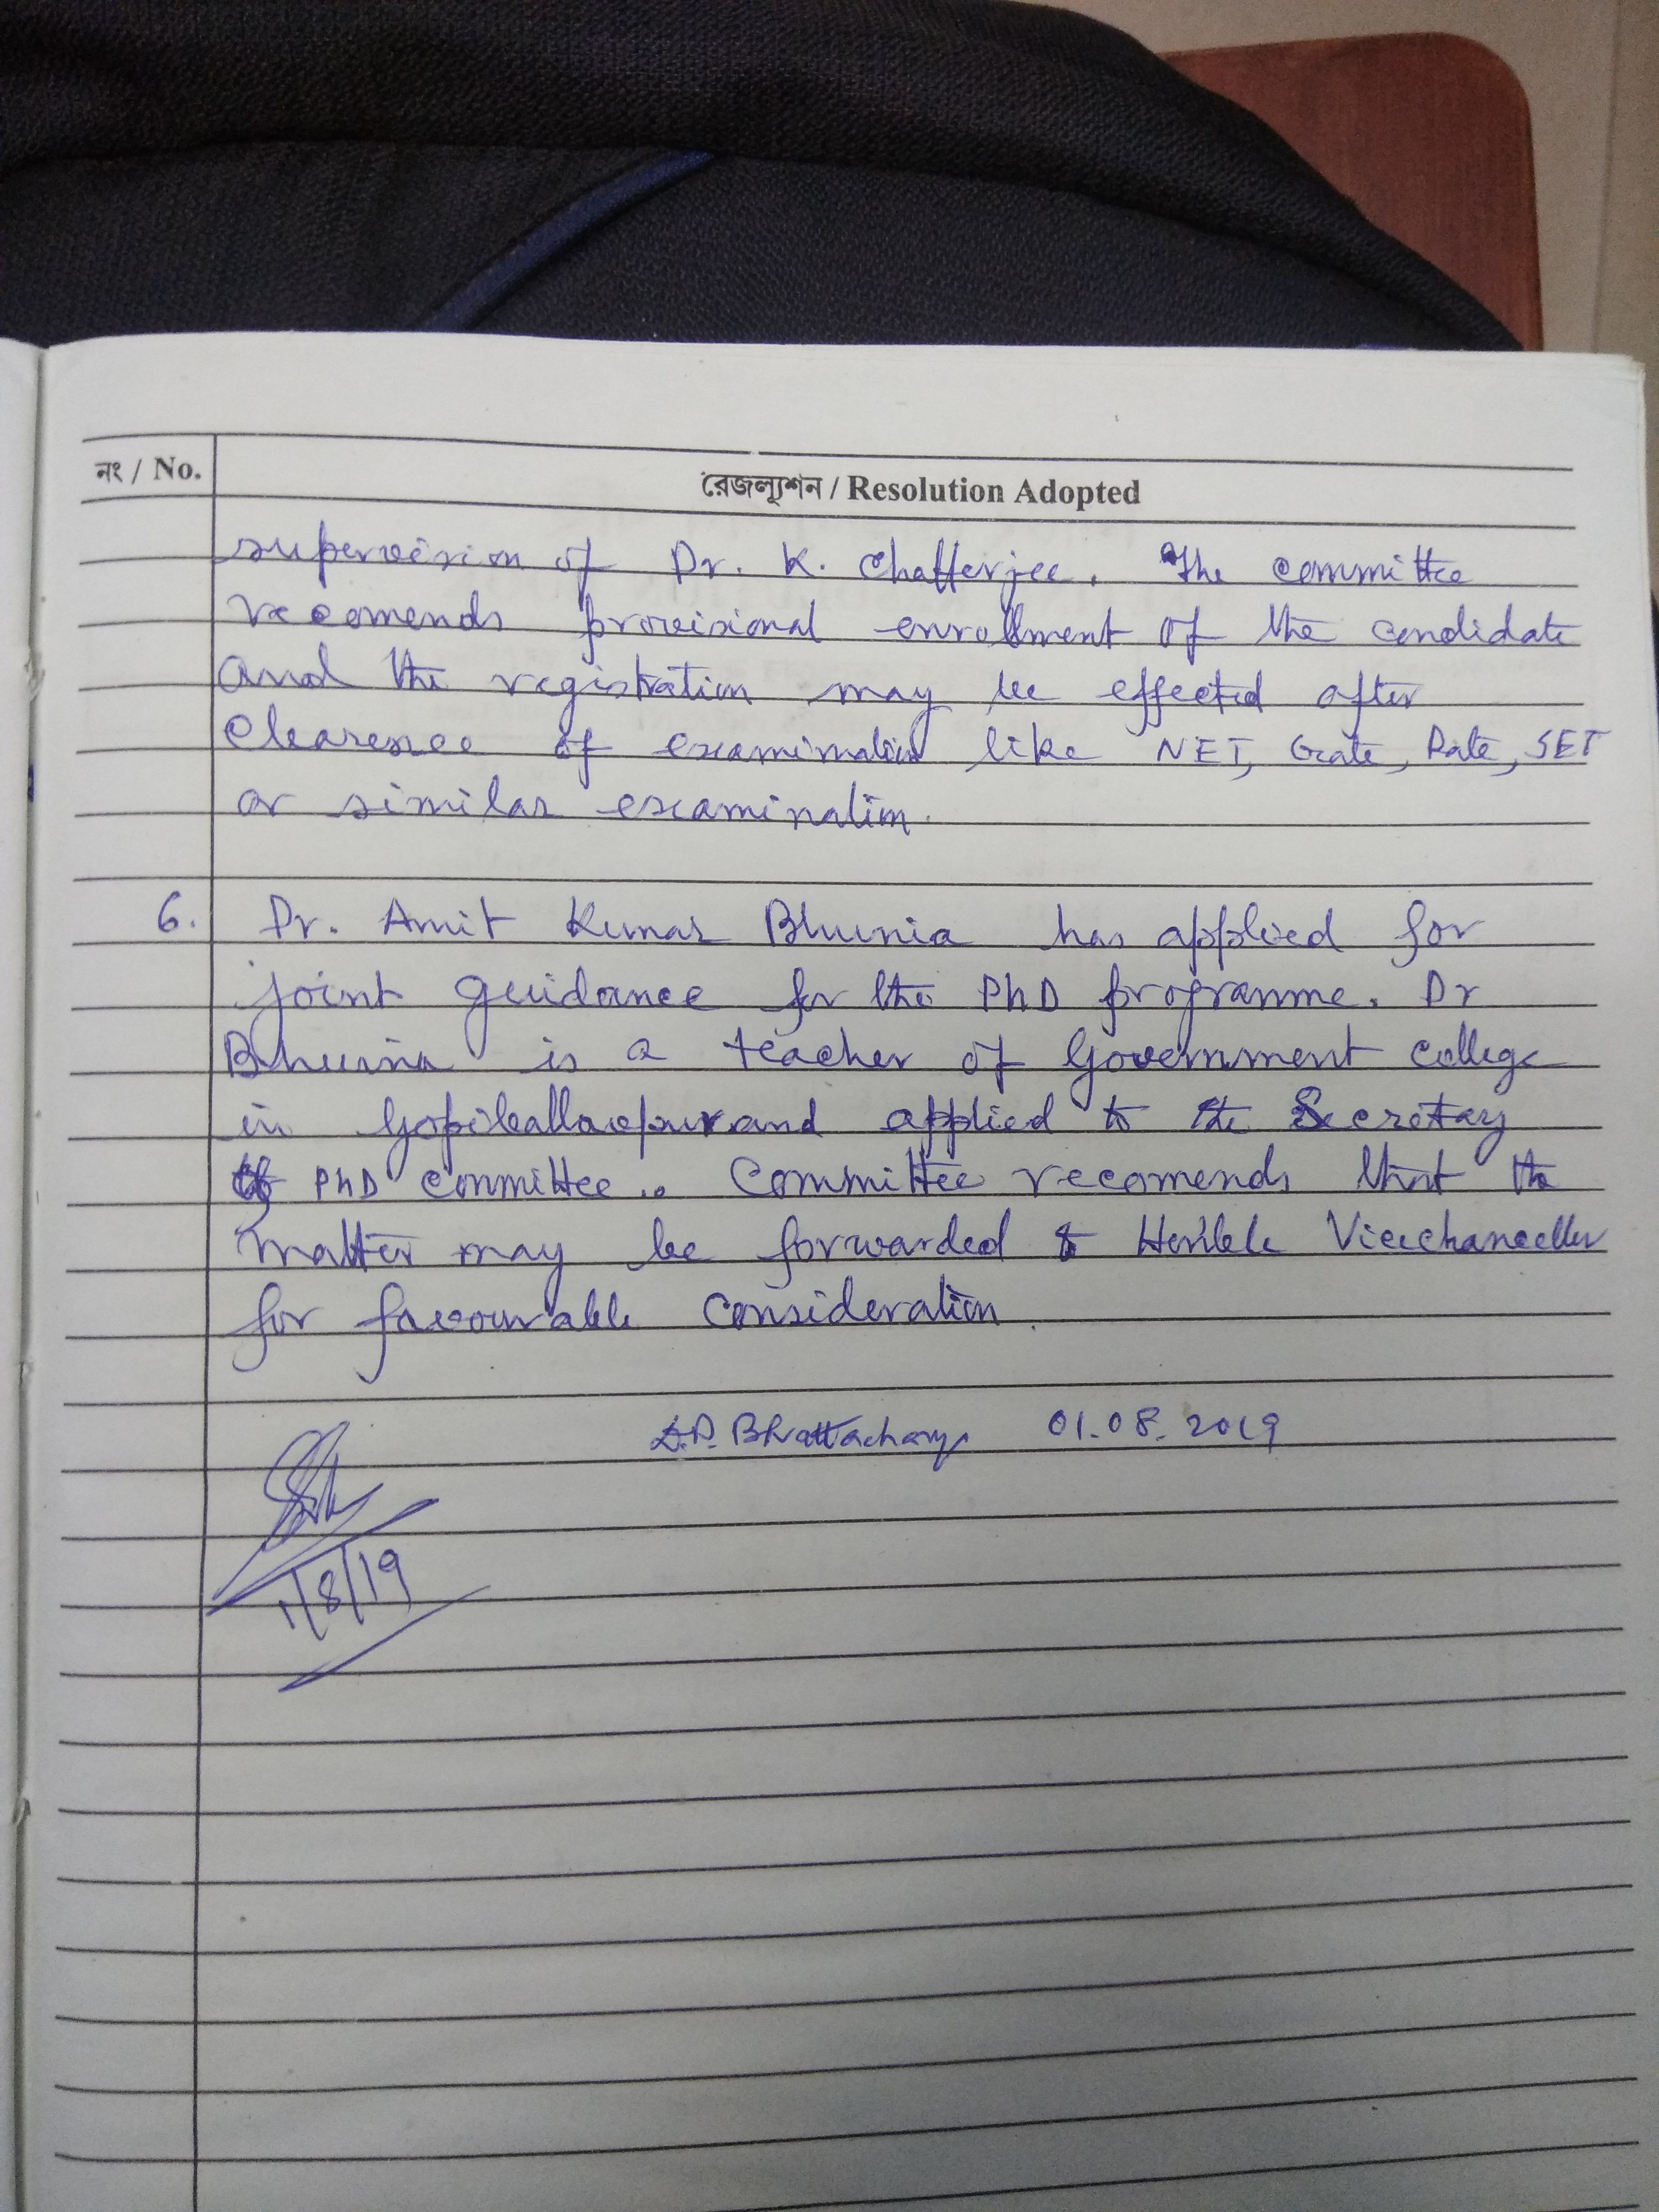 নং / No.
রেজল্যূশন / Resolution Adopted
supervision of Dr. K. Chatterjee. The committee
recomends provisional enrollment of the candidate
and the registration may be effected after
clearence of examination like NET, Gate, Rate, SET
or similar examination.
6. Dr. Amit Kumar Bhunia has applied for
joint guidance for the PhD programme. Dr
Bhunia is a teacher of Government college
in and applied to the Secretay
of PhD committee. Committee recomends that the
matter may be forwarded to Hon'ble Vicechancellor
for favourable consideration.
Bhattacharya 01.08.2019
1/8/19